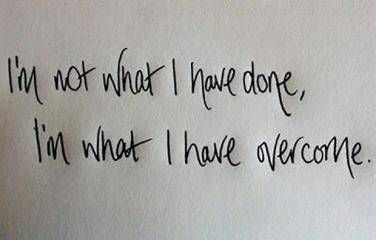 I'm not what I have done,
I'm what I have overcome.